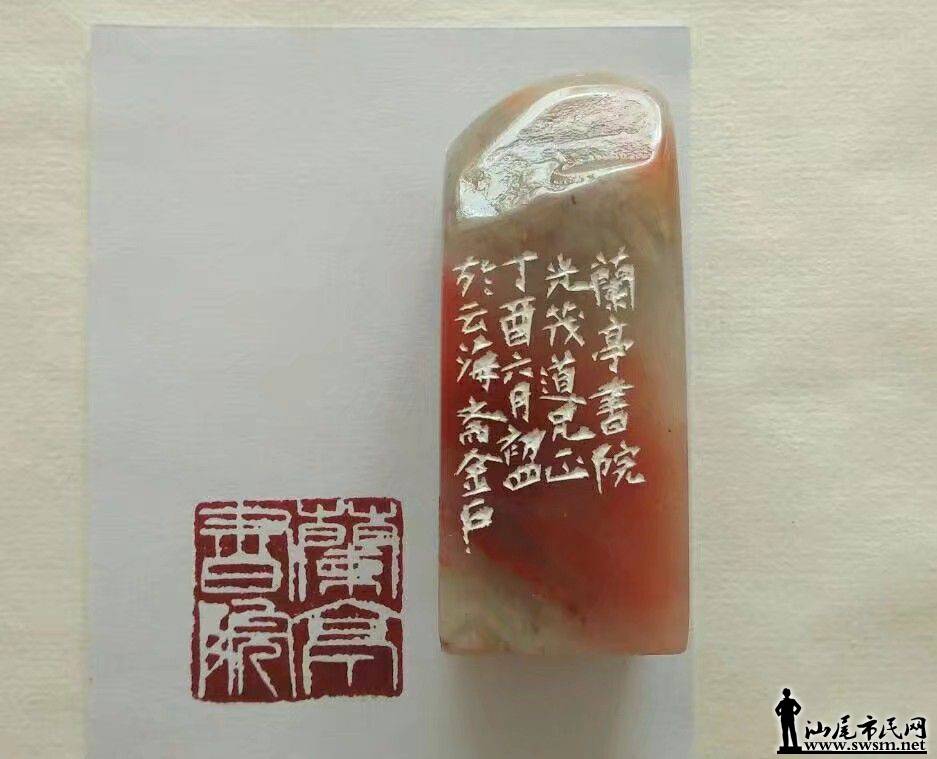 蘭亭書院
光茂道兄正
丁酉六月初四
於云海斋金石
蘭亭
書院
汕尾市民网
www.swsm.net